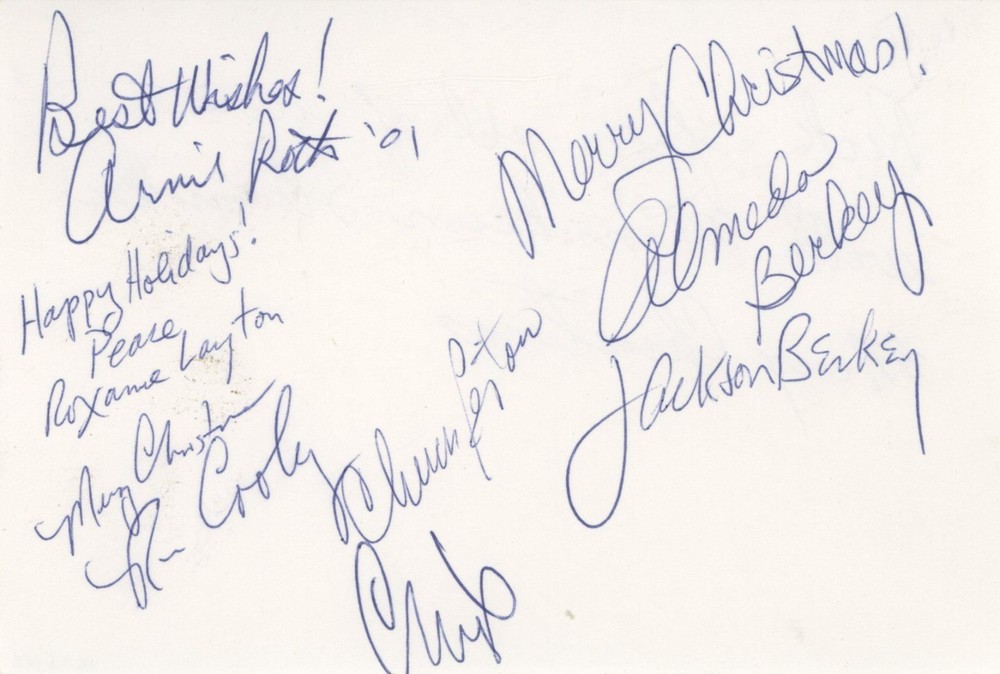 Best Wishes!
Arnie Roth '01
Happy Holidays!
Peace,
Roxanne Layton
Merry Christmas
Ron Cooley
Chip
Merry Christmas!
Almeda
Berkey
Jackson Berkey